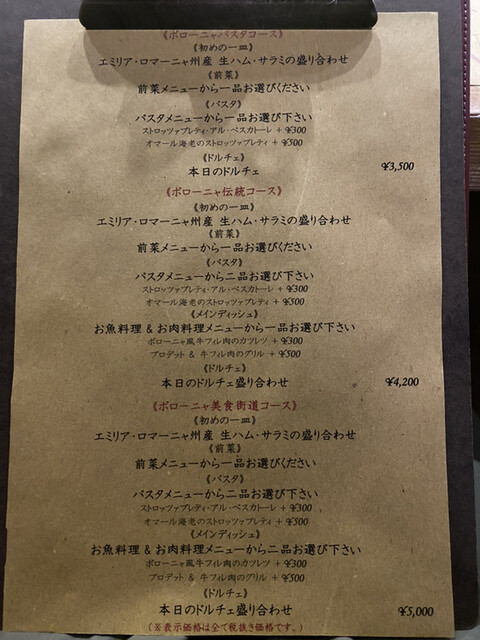 《ボローニャパスタコース》
《初めの一皿》
エミリア・ロマーニャ州産 生ハム・サラミの盛り合わせ
《前菜》
前菜メニューから一品お選びください
《パスタ》
パスタメニューから一品お選び下さい
ストロッツァプレティ・アル・ペスカトーレ + ¥300
オマール海老のストロッツァプレティ + ¥500
《ドルチェ》
本日のドルチェ ¥3,500
《ボローニャ伝統コース》
《初めの一皿》
エミリア・ロマーニャ州産 生ハム・サラミの盛り合わせ
《前菜》
前菜メニューから一品お選びください
《パスタ》
パスタメニューから二品お選び下さい
ストロッツァプレティ・アル・ペスカトーレ + ¥300
オマール海老のストロッツァプレティ + ¥500
《メインディッシュ》
お魚料理 & お肉料理メニューから一品お選び下さい
ボローニャ風牛フィレ肉のカツレツ + ¥300
ブロデット & 牛フィレ肉のグリル + ¥500
《ドルチェ》
本日のドルチェ盛り合わせ ¥4,200
《ボローニャ美食街道コース》
《初めの一皿》
エミリア・ロマーニャ州産 生ハム・サラミの盛り合わせ
《前菜》
前菜メニューから一品お選びください
《パスタ》
パスタメニューから二品お選び下さい
ストロッツァプレティ・アル・ペスカトーレ + ¥300
オマール海老のストロッツァプレティ + ¥500
《メインディッシュ》
お魚料理 & お肉料理メニューから二品お選び下さい
ボローニャ風牛フィレ肉のカツレツ + ¥300
ブロデット & 牛フィレ肉のグリル + ¥500
《ドルチェ》
本日のドルチェ盛り合わせ ¥5,000
(※表示価格は全て税抜き価格です。)